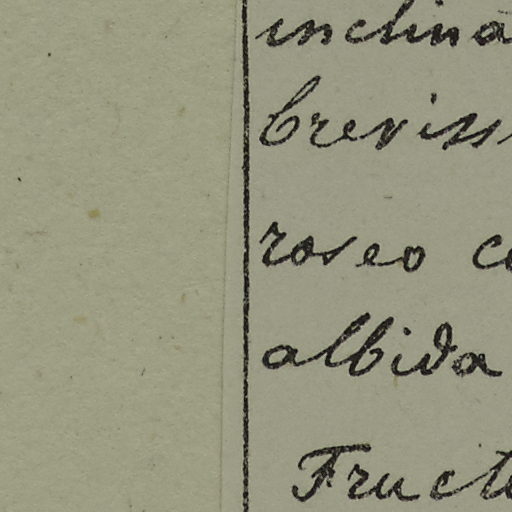 inclina
breviss
roseo co
albida
Fructu